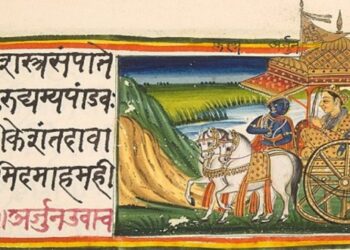 अर्जुन
शस्त्रसंपाते
रुद्यम्यपांडवः
केशंतदावा
मिदमाहमही
अर्जुनउवाच